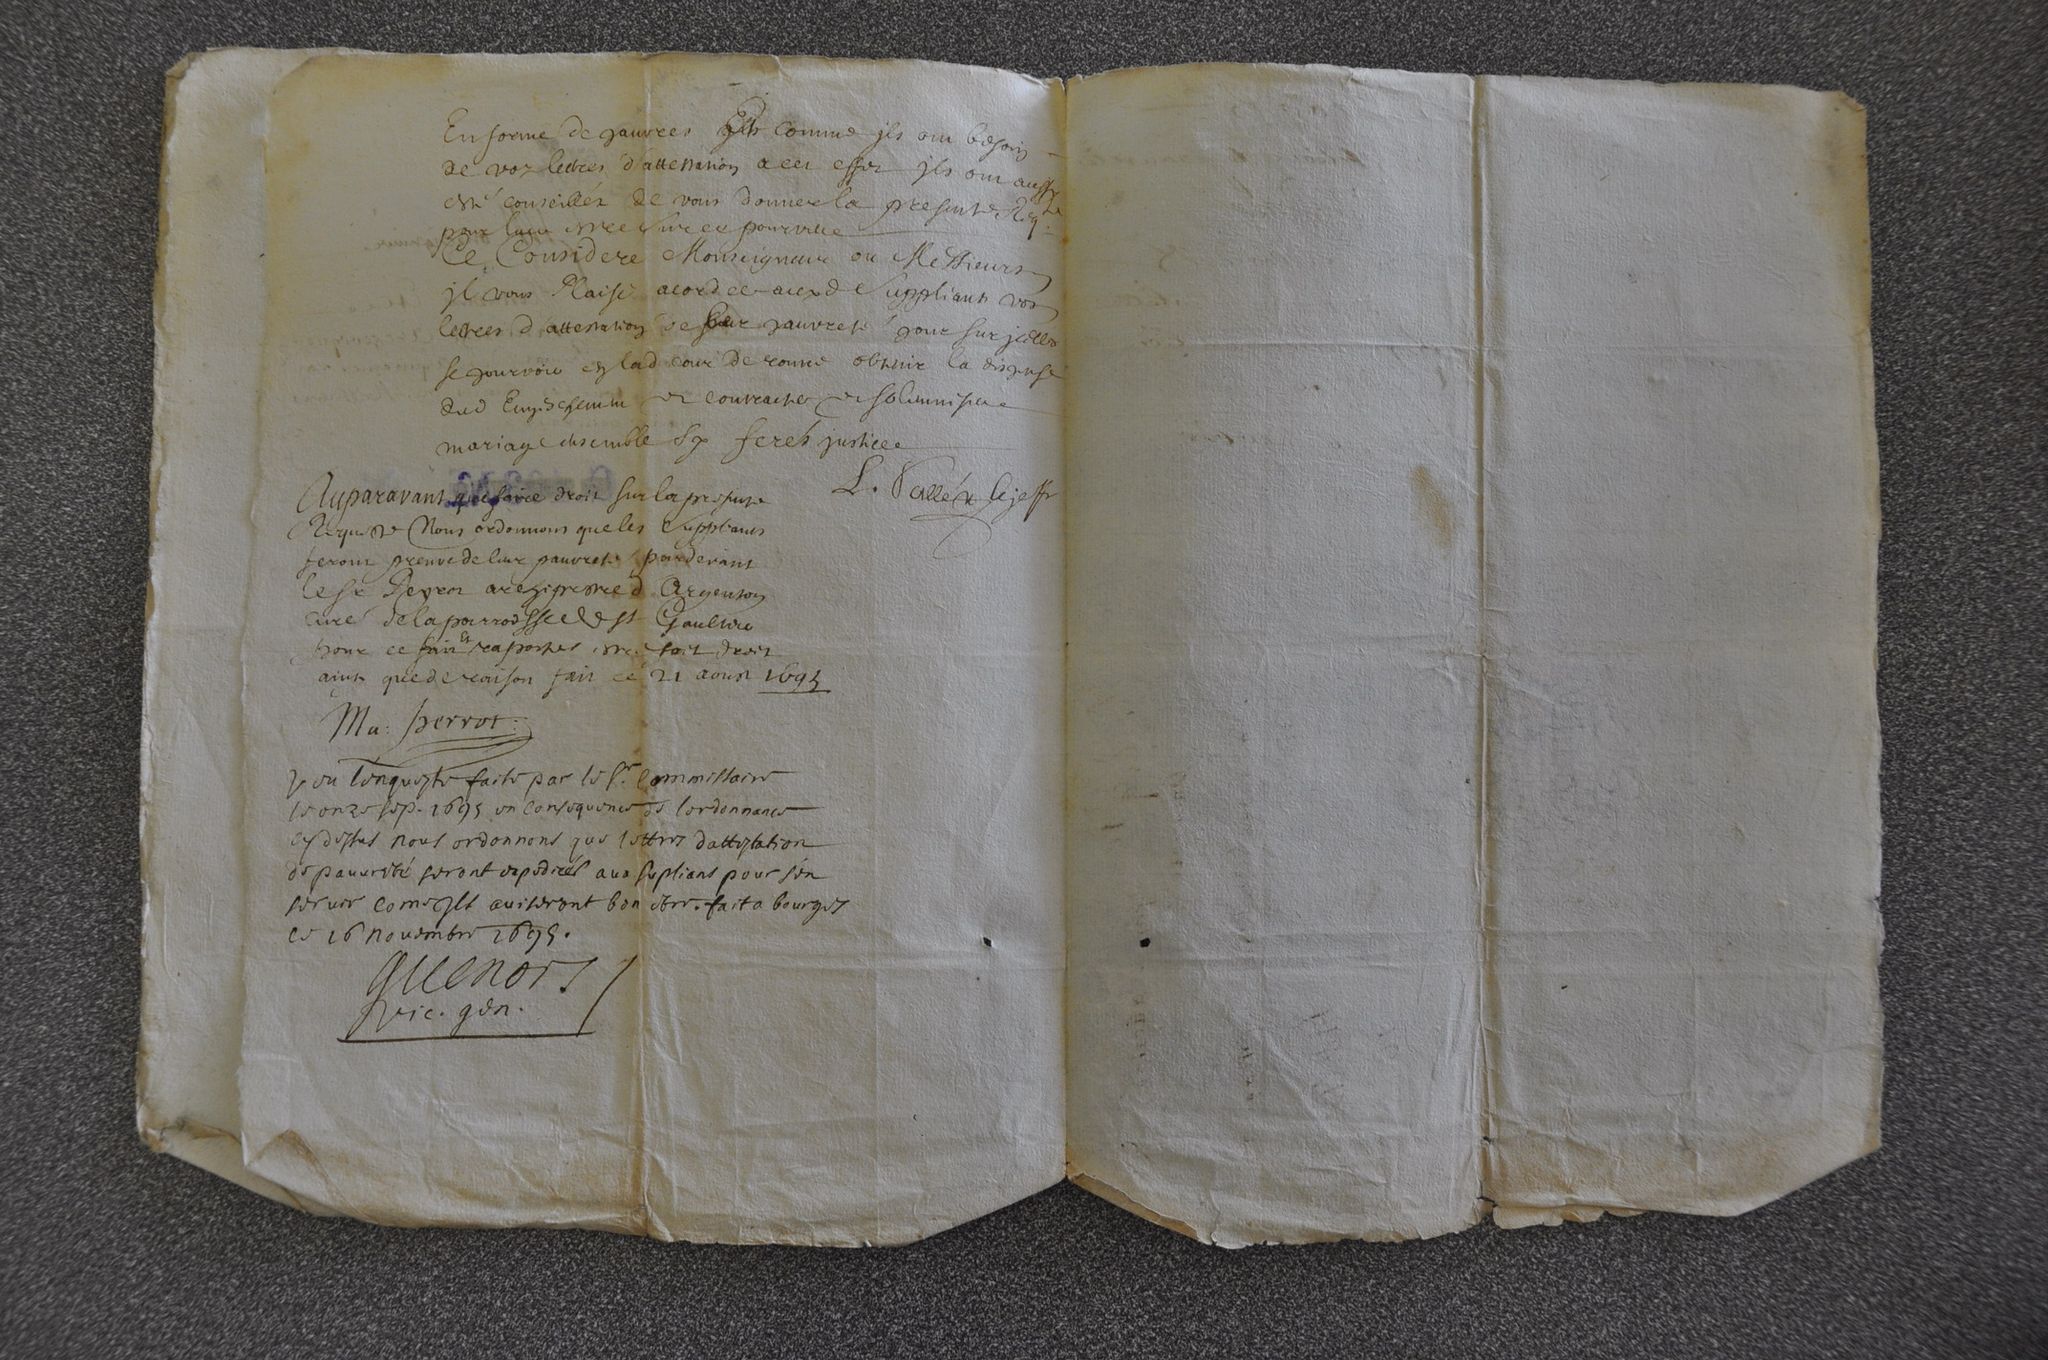 En forme de pauvres Et comme jls ont besoin
de voz lettres d'attestation a cet effet jls ont aussy
esté conseillés de vous donner la presente Reqte
pour leur estre sur ce pourveu
Ce Consideré Monseigneur ou Messieurs
jl vous Plaise acorder auxd Suppliants vos
lettres d'attestation de leur pauvreté pour sur jcelles
se pourvoir en lad cour de rome obtenir la dispense
dud Empeschement et contracter et solemniser
mariage ensemble Sy ferés justice
L. Palléu
Auparavant que faire droit sur la presente
Requeste Nous ordonnons que les Suppliants
feront preuve de leur pauvreté pardevant
le Sr archiprestre d Argenton
curé de la parroisse de St Gaultier
pour ce fait Et raporté estre fait droit
ainsy que de raison fait ce 21 aoust 1695
Ma: perrot.
Veu lenqueste faite par le Sr. Commissaire
le onze sep. 1695 en consequence de lordonnance
cy dessus nous ordonnons que lettres dattestation
de pauvreté seront expediées aux suplians pour sen
servir come jls aviseront bon estre. fait a bourges
ce 16 novembre 1695.
Guenois
vic. gén.